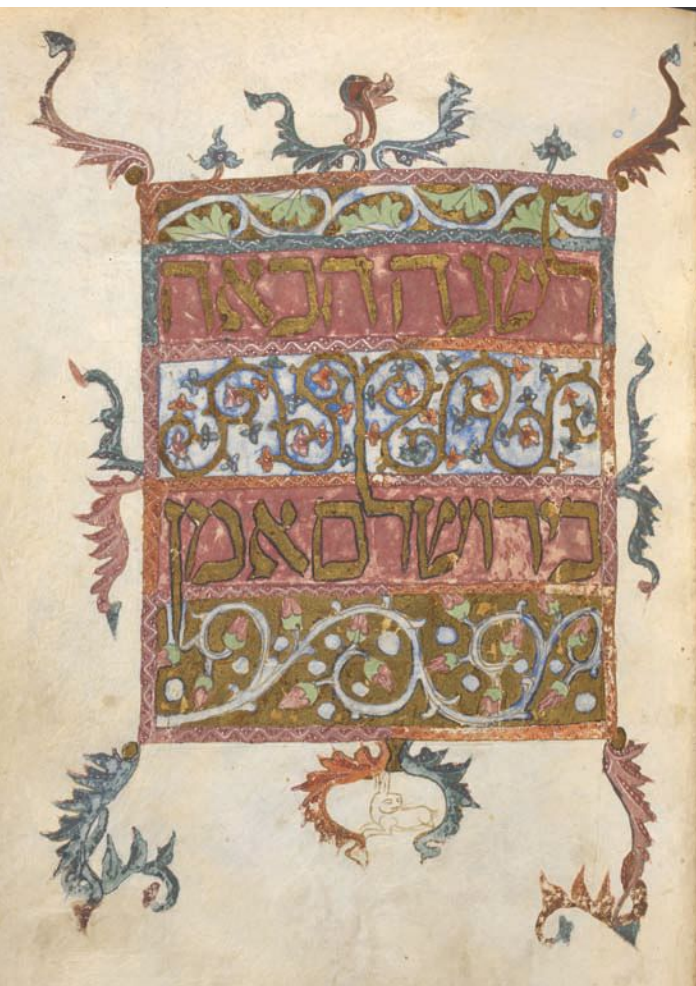 לשנה הבאה
בירושלם אמן